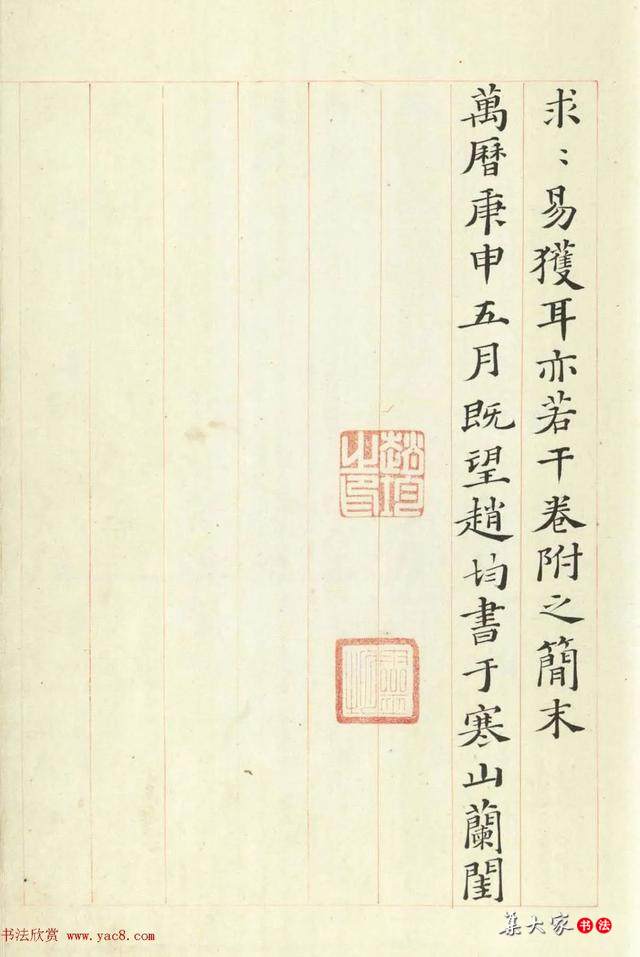 求〻易獲耳亦若干卷附之簡末
萬曆庚申五月既望趙均書于寒山蘭閨
趙均之印
书法欣赏 www.yac8.com
集大家书法